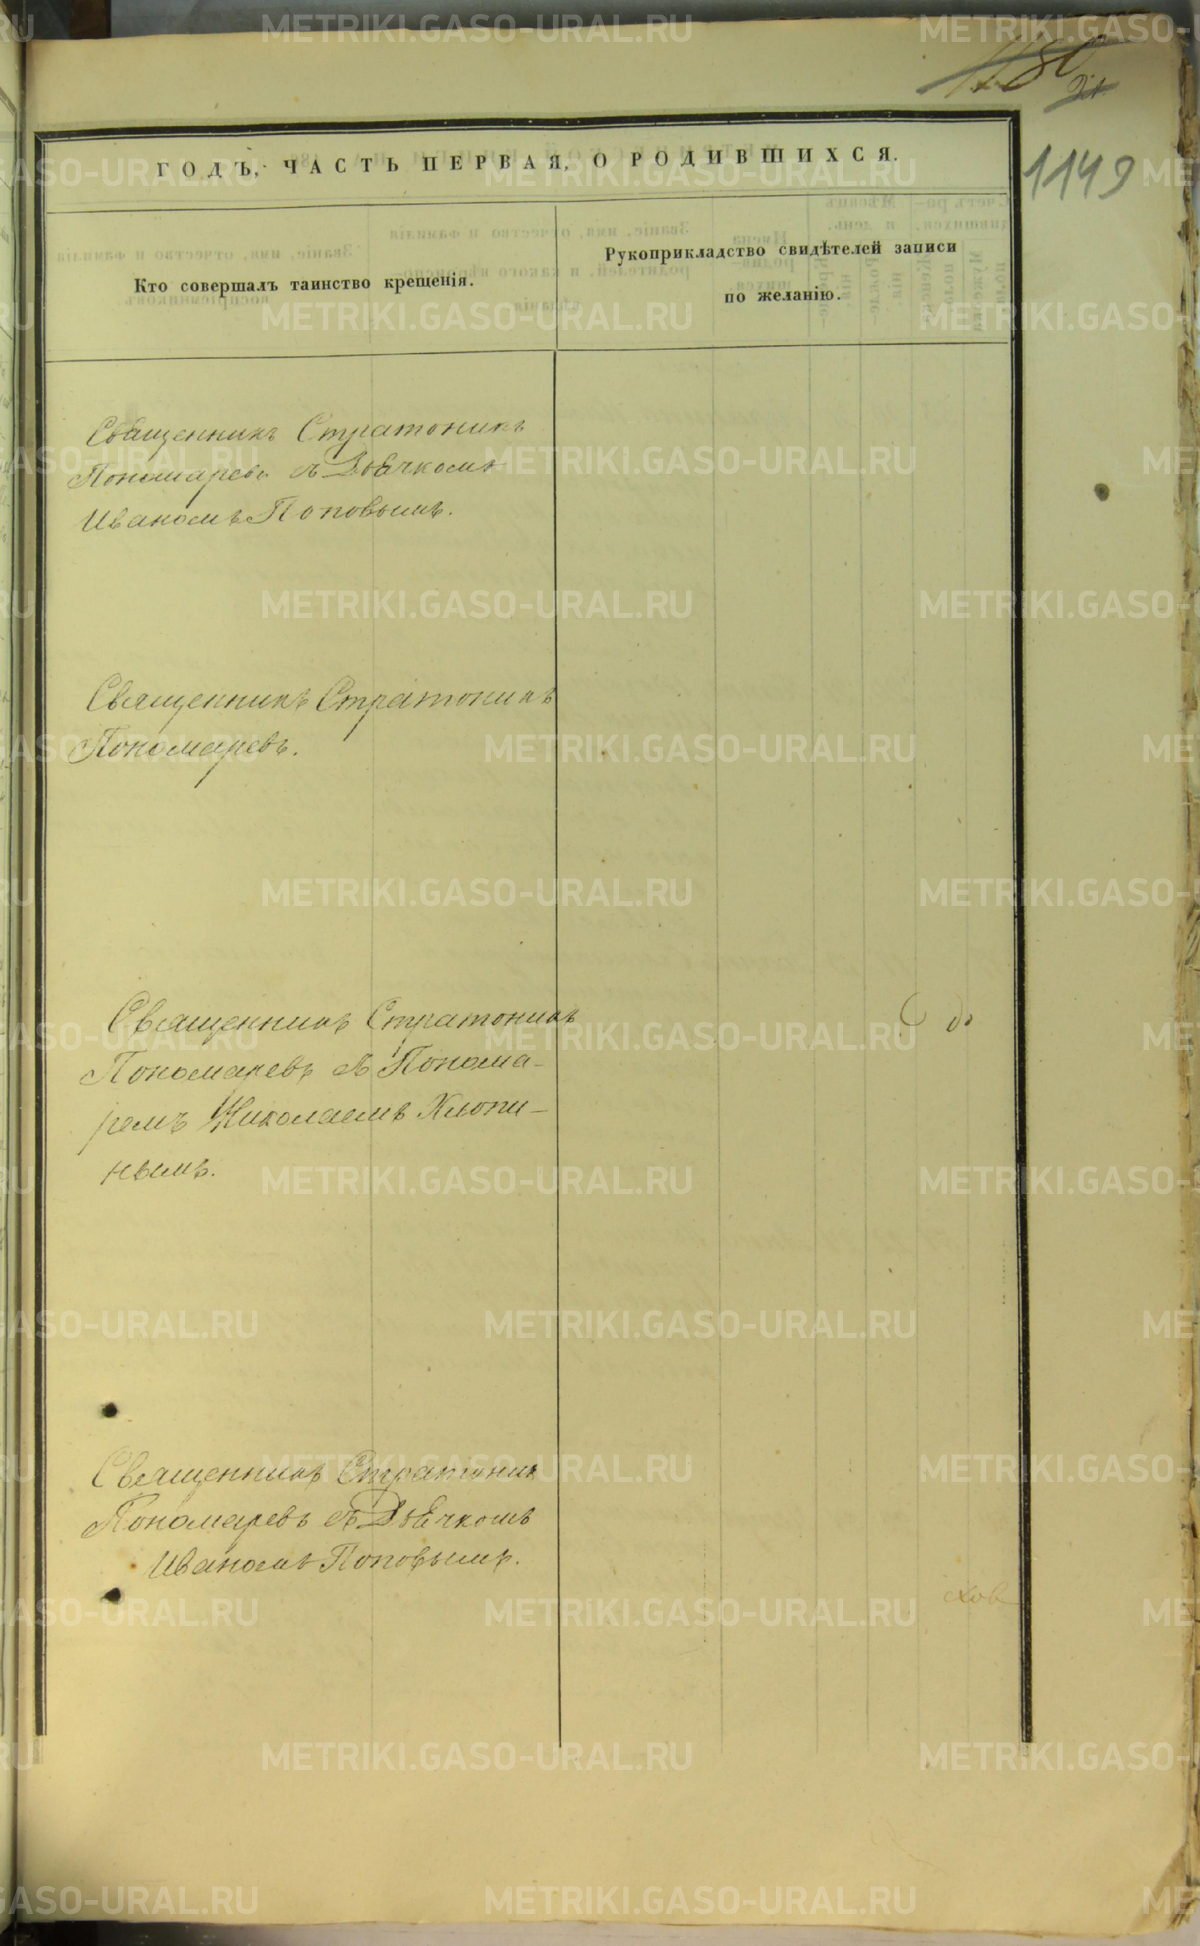 1149
ГОДЪ, ЧАСТЬ ПЕРВАЯ, О РОДИВШИХСЯ.
Кто совершалъ таинство крещенія.
Рукоприкладство свидѣтелей записи
по желанію.
Священникъ Стратоникъ
Пономаревъ съ Дьячкомъ
Иваномъ Поповымъ.
Священникъ Стратоникъ
Пономаревъ.
Священникъ Стратоникъ
Пономаревъ съ Понома-
ремъ Николаемъ Клопи-
нымъ.
Священникъ Стратоникъ
Пономаревъ съ Дьячкомъ
Иваномъ Поповымъ.
METRIKI.GASO-URAL.RU